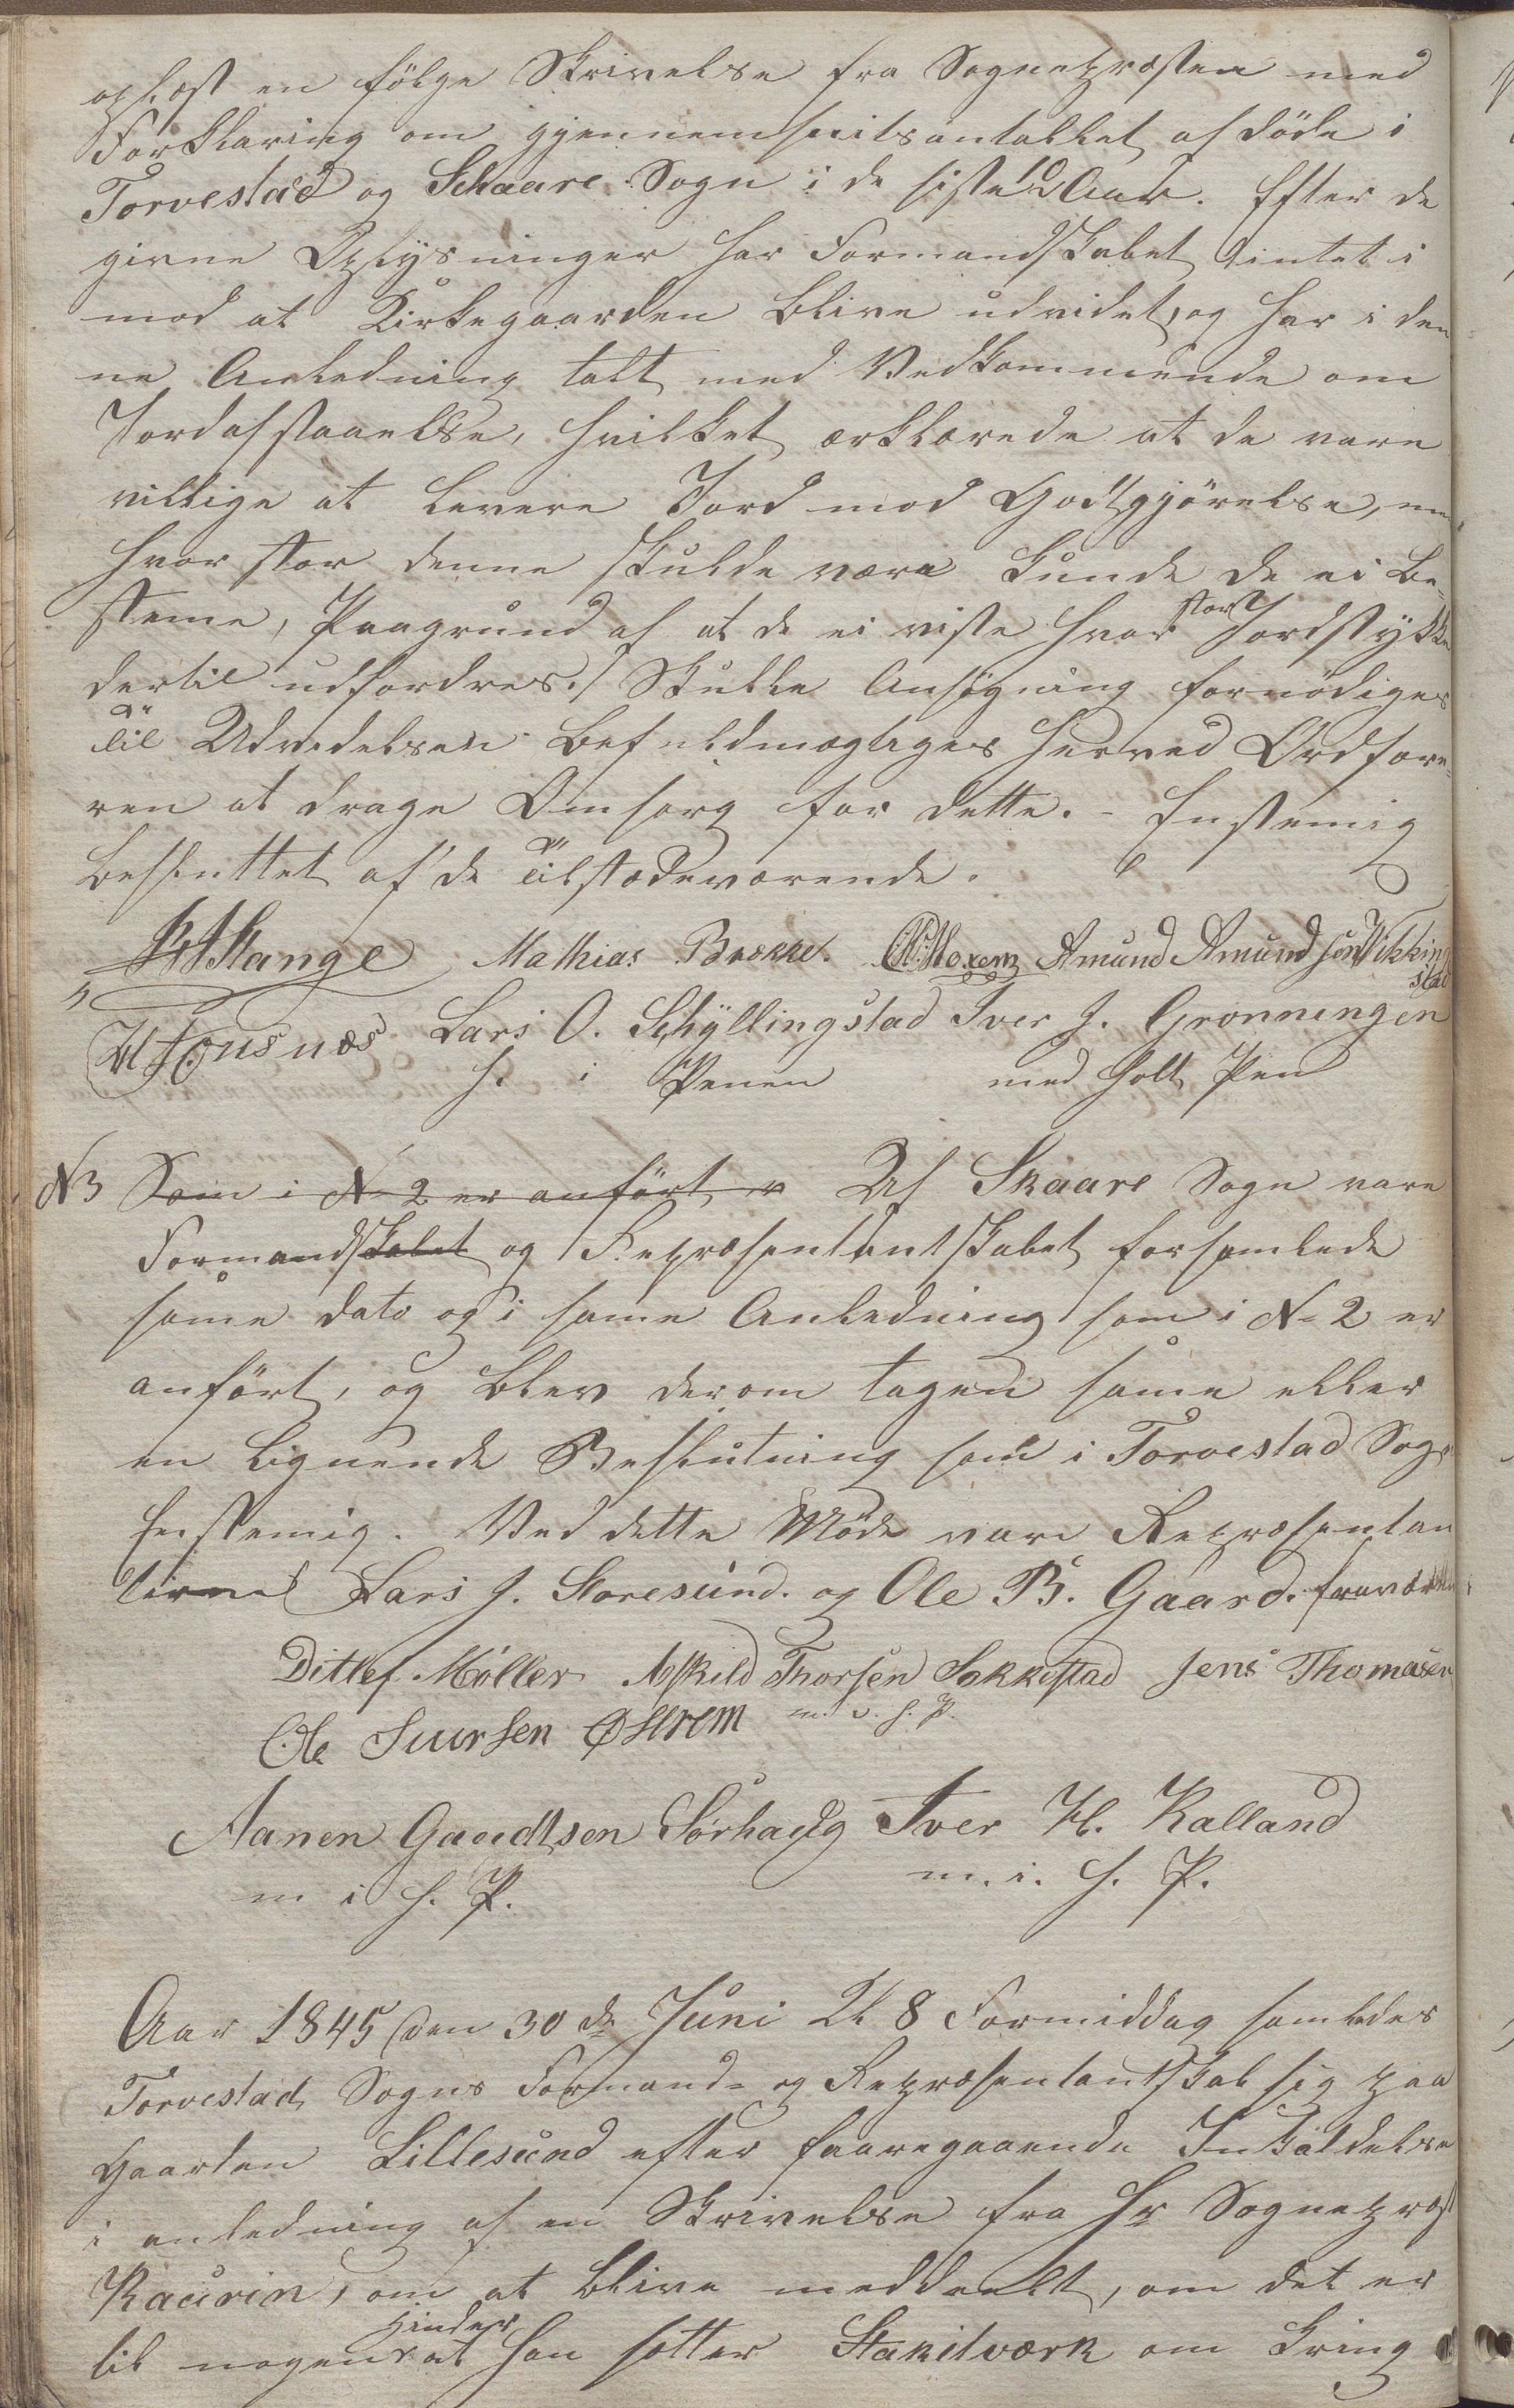 oplæst en følge Skrivelse fra Sognepræsten med
Forklaring om gjennemsnitsantallet af døde i
Torvestad og Schaare Sogn i de siste 10 Aar. Efter de
givne Oplysninger har Formandskabet intet i
mod at Kirkegaarden blive udvidet, og har i den
ne Anledning talt med Vedkommende om
Jordafstaaelse, hvilket erklærede at de vare
villige at levere Jord mod Godtgjørelse, men
hvor stor denne skulde være kunde de ei be-
steme, Paagrund af at de ei viste hvor stort Jordstykke
dertil udfordres. Skulle Ansøgning fornødiges
til Udvidelsen befuldmægtiges herved Ordføre-
ren at drage Omsorg for dette. - Enstemig
besluttet af de tilstædeværende.
Stange Mathias Brække. Amund Amundsen Vikking
stad
Housnæs Lars O. Schyllingstad Iver J. Gronningen
h. i Penen med holt Pen
N 3 Som i N 2 er anført Af Skaare Sogn vare
Formandskabet og Repræsentantskabet forsamlede
same dato og i same Anledning som i N 2 er
anført, og blev derom tagen same eller
en lignende Beslutning som i Torvestad Sogn
Enstemig. Ved dette Møde vare Repræsentan
terne Lars J. Storesund. og Ole B. Gaard. fraværende
Ditlef Møller Askild Thorsen Sakkestad Jens Thomasen
Ole Siursen Østrem m. i. h. P.
Aanen Gaudtsen Sørhaug Iver H. Kalland
m i h. P. m. i. h. P.
Aar 1845 den 30 de Juni Kl 8 Formiddag samledes
Torvestad Sogns Formand- og Repræsentantskab sig paa
Gaarden Lillesund efter foaregaaende Inkaldelse
i anledning af en Skrivelse fra Hr Sognepræst
Kaurin, om at blive meddeelt, om det er
til nogen hinder at han sætter Stakitværk om kring